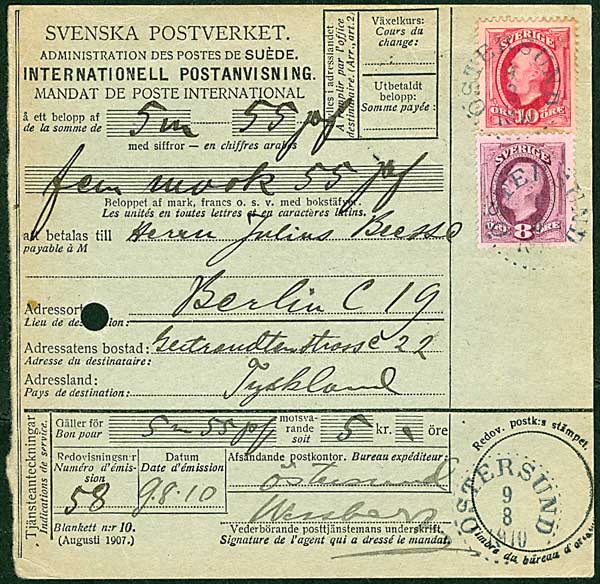 SVENSKA POSTVERKET.
ADMINISTRATION DES POSTES DE SUÈDE.
INTERNATIONELL POSTANVISNING.
MANDAT DE POSTE INTERNATIONAL
Ifylles i adresslandet
A remplir par l'office
destinataire. (Arr., art. 2.)
Växelkurs:
Cours du
change:
Utbetaldt
belopp:
Somme payée:
å ett belopp af
de la somme de
5 m — 55 pf
med siffror — en chiffres arabes
fem mark 55 pf
Beloppet af mark, francs o. s. v. med bokstäfver.
Les unités en toutes lettres et en caractères latins.
att betalas till
payable à M
Herrn Julius
Adressort:
Lieu de destination:
Berlin C 19
Adressatens bostad:
Adresse du destinataire:
22
Adressland:
Pays de destination:
Tyskland
SVERIGE
10 ÖRE
SVERIGE
8 ÖRE
ÖSTERSUND
ÖSTERSUND
Tjänsteanteckningar
Indications de service.
Gäller för
Bon pour
5 m 55 pf
motsva-
rande
soit
5 kr. öre
Redovisningsnr
Numéro d'émis-
sion
58
Datum
Date d'émission
9.8.10
Afsändande postkontor. Bureau expéditeur:
Östersund
Blankett n:r 10.
(Augusti 1907.)
Vederbörande posttjänstemans underskrift.
Signature de l'agent qui a dressé le mandat.
Redov. postk:s stämpel.
ÖSTERSUND
9
8
1910
Timbre du bureau d'origine